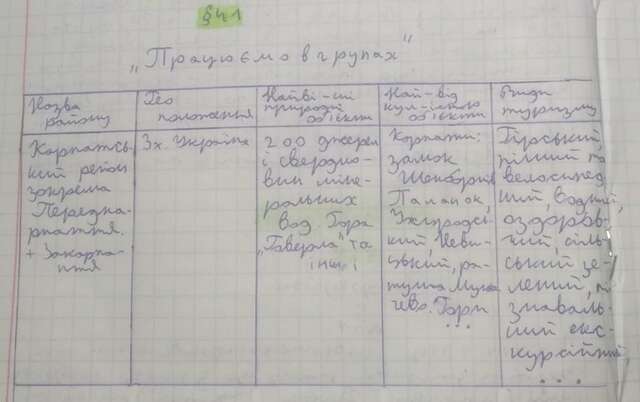 §41
„Працюємо в групах"
Назва
району
Гео
положення
Найві-ші
природні
об'єкти
Най-від
кул-ільною
об'єкти
Види
туризму
Карпатсь
кий регіон
зокрема
Передка-
рпаття.
+ Закарпа-
ття
Зх. Україна
200 джерел
і свердло-
вин міне-
ральних
вод Гора
„Говерла" та
інші
Карпати:
замок
Шенборнів
Паланок,
Ужгородсь
кий, Неви-
цький, ра-
туша Мука
чево. Гори
...
Гірський,
піший та
велосипед
ний, водний,
оздоров-
чий, сіль-
ський зе-
лений, пі
знаваль-
ний екс-
курсійний,
...